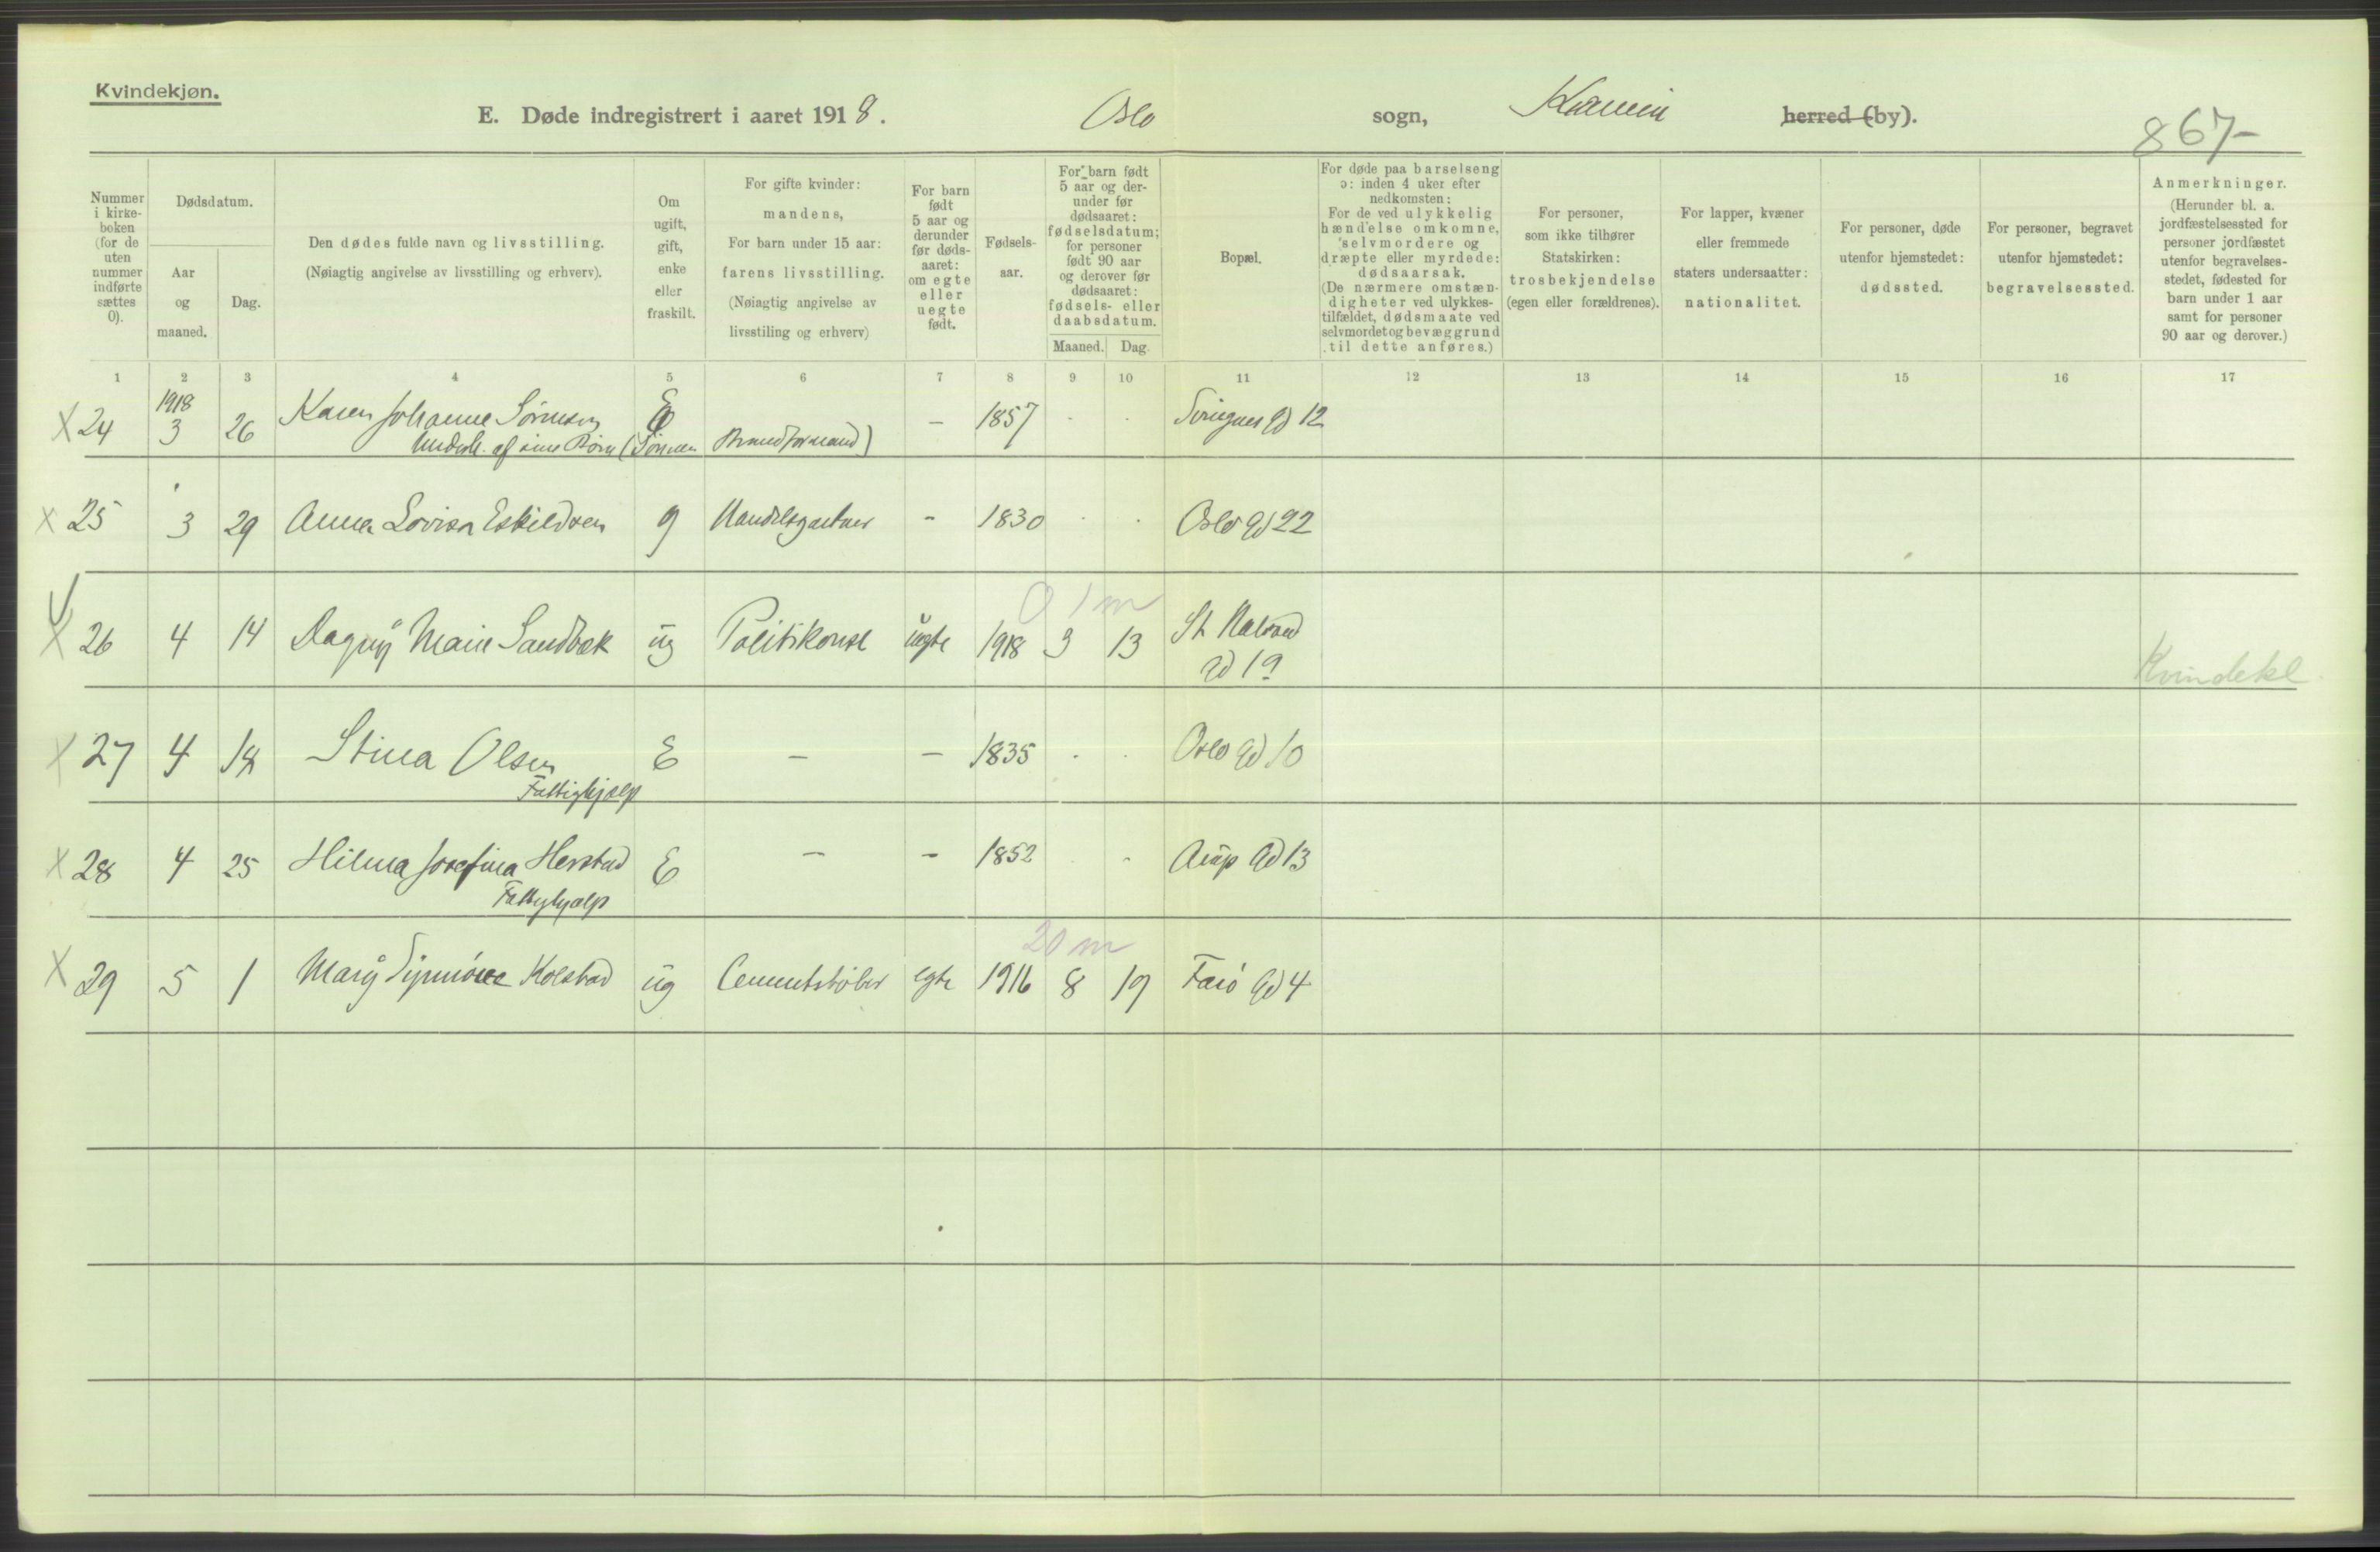 Kvindekjøn.
E. Døde indregistrert i aaret 1918. Oslo sogn, herred (by).
867-
Nummer i kirke-boken (for de uten nummer indførte sættes 0).
Dødsdatum.
Aar og maaned.
Dag.
Den dødes fulde navn og livsstilling.
(Nøiagtig angivelse av livsstilling og erhverv).
Om ugift, gift, enke eller fraskilt.
For gifte kvinder: mandens,
For barn under 15 aar: farens livsstilling.
(Nøiagtig angivelse av livsstiling og erhverv)
For barn født 5 aar og derunder før døds-aaret: om egte eller uegte født.
Fødsels-aar.
For barn født 5 aar og der-under før dødsaaret: fødselsdatum; for personer født 90 aar og derover før dødsaaret: fødsels- eller daabsdatum.
Maaned. Dag.
Bopæl.
For døde paa barselseng ɔ: inden 4 uker efter nedkomsten:
For de ved ulykkelig hændelse omkomne, selvmordere og dræpte eller myrdede: dødsaarsak.
(De nærmere omstæn-digheter ved ulykkes-tilfældet, dødsmaate ved selvmordet og bevæggrund til dette anføres.)
For personer, som ikke tilhører Statskirken: trosbekjendelse (egen eller forældrenes).
For lapper, kvæner eller fremmede staters undersaatter: nationalitet.
For personer, døde utenfor hjemstedet: dødssted.
For personer, begravet utenfor hjemstedet: begravelsessted.
Anmerkninger.
(Herunder bl. a. jordfæstelsessted for personer jordfæstet utenfor begravelses-stedet, fødested for barn under 1 aar samt for personer 90 aar og derover.)
1 2 3 4 5 6 7 8 9 10 11 12 13 14 15 16 17
1918
X 24 3 26 Karen Johanne Sørensen E – 1857 gd 12
af sine Børn (Sørensen Brandformand)
X 25 3 29 Anna Lovisa Eskildsen g Handelsgartner – 1830 Oslo gd 22
0 1 m
X 26 4 14 Dagny Marie Sandbæk ug Politikonst uegte 1918 3 13 St Halvard
gd 19
Kvindekl.
X 27 4 18 Stina Olsen E – – 1835 Oslo gd 10
Fattighjælp
X 28 4 25 Hilma Josefina Herstad E – – 1852 Arup gd 13
Fattighjælp
20 m
X 29 5 1 Mary Synnøve Kolstad ug Cementstøber egte 1916 8 19 gd 4